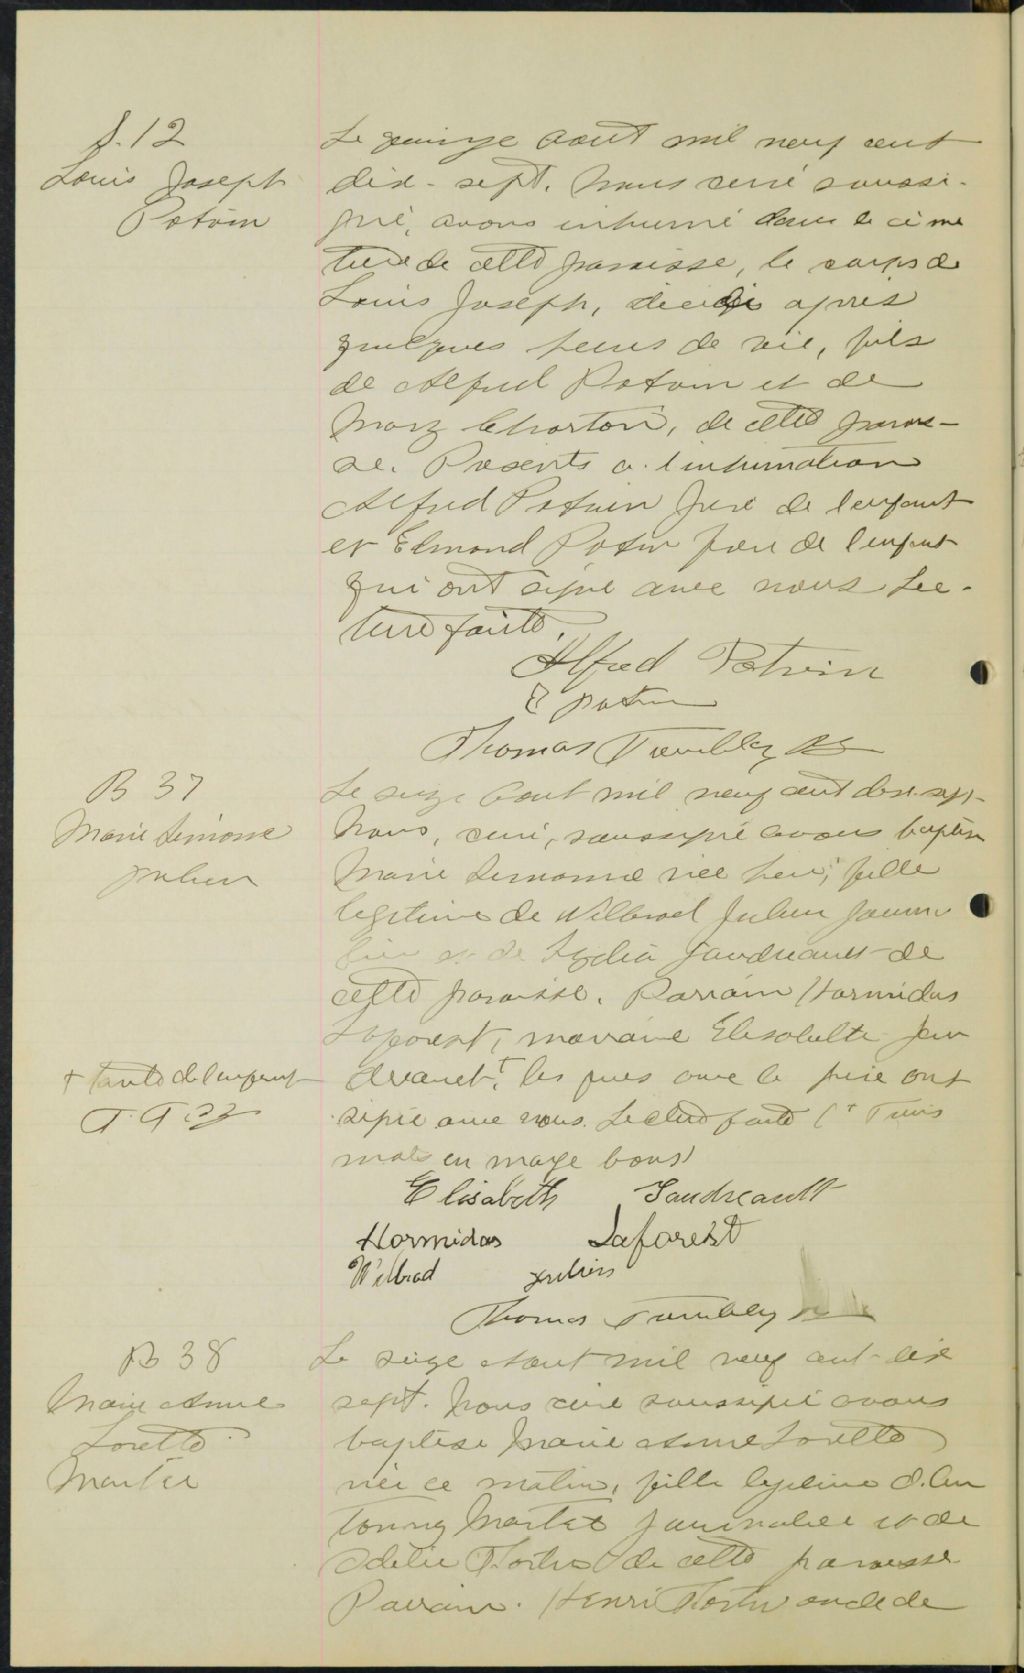 S. 12
Louis Joseph
Potvin
Le quinze aout mil neuf cent
dix-sept. Nous curé soussi-
gné, avons inhumé dans le cime
tière de cette paroisse, le corps de
Louis Joseph, décédé après
quelques heures de vie, fils
de Alfred Potvin et de
Mary, de cette parois-
se. Présents a l'inhumation
Alfred Potvin père de l'enfant
et Edmond Potvin de l'enfant
qui ont signé avec nous Lec-
ture faite.
Alfred Potvin
E Potvin
Thomas Tremblay
B 37
Marie Simonne
Julien
Le seize Aout mil neuf cent dix-sept
Nous, curé, soussigné avons baptisé
Marie Simonne née hier, fille
légitime de Wilbrod Julien journa
lier et de Lydia Gaudreault de
cette paroisse. Parrain Hormidas
Laforest, marraine Elisabette Gau
dreault,+ les ques avec le père ont
signé avec nous. Lecture faite (+ Trois
mots en marge bons)
+ tante de l'enfant
T. T.
Elisabeth Gaudreault
Hormidas Laforest
Wilbrad Julien
Thomas Tremblay
B 38
Marie Anne
Lorette
Martel
Le seize Aout mil neuf cent-dix
sept. Nous curé soussigné avons
baptisé Marie Anne Lorette
née ce matin, fille légitime d'An
tonny Martel journalier et de
Odélie Fortin de cette paroisse
Parrain. Henri Fortin oncle de